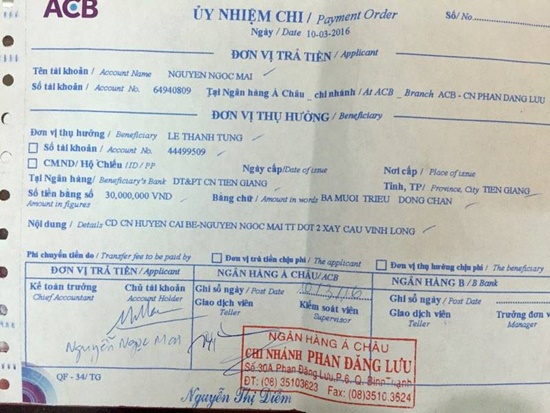 ACB
ỦY NHIỆM CHI / Payment Order
Số / No.
Ngày / Date 10-03-2016
ĐƠN VỊ TRẢ TIỀN / Applicant
Tên tài khoản / Account Name NGUYEN NGOC MAI
Số tài khoản / Account No. 64940809 Tại Ngân hàng Á Châu _ chi nhánh / At ACB _ Branch ACB - CN PHAN DANG LUU
ĐƠN VỊ THỤ HƯỞNG / Beneficiary
Đơn vị thụ hưởng / Beneficiary LE THANH TUNG
Số tài khoản / Account No. 44499509
CMND/ Hộ Chiếu / ID / PP Ngày cấp/Date of issue Nơi cấp / Place of issue
Tại Ngân hàng/ Beneficiary's Bank DT&PT CN TIEN GIANG Tỉnh, TP/ Province, City TIEN GIANG
Số tiền bằng số 30,000,000 VND Bằng chữ / Amount in words BA MUOI TRIEU DONG CHAN
Amount in figures
Nội dung / Details CD CN HUYEN CAI BE-NGUYEN NGOC MAI TT DOT 2 XAY CAU VINH LONG
Phí chuyển tiền do / Transfer fee to be paid by Đơn vị trả tiền chịu phí / The applicant Đơn vị thụ hưởng chịu phí / The beneficiary
ĐƠN VỊ TRẢ TIỀN / Applicant NGÂN HÀNG Á CHÂU / ACB NGÂN HÀNG B / B Bank
Kế toán trưởng Chủ tài khoản Ghi sổ ngày / Post Date 10/3/16 Ghi sổ ngày / Post Date
Chief Accountant Account Holder Giao dịch viên Kiểm soát viên Giao dịch viên Trưởng đơn v
Teller Supervisor Teller Manager
Nguyễn Ngọc Mai
NGÂN HÀNG Á CHÂU
CHI NHÁNH PHAN ĐĂNG LƯU
Số 30A Phan Đăng Lưu, P.6, Q. Bình Thạnh
ĐT: (08) 35103623 Fax: (08)3510.3624
QF - 34 / TG
Nguyễn Thị Diễm